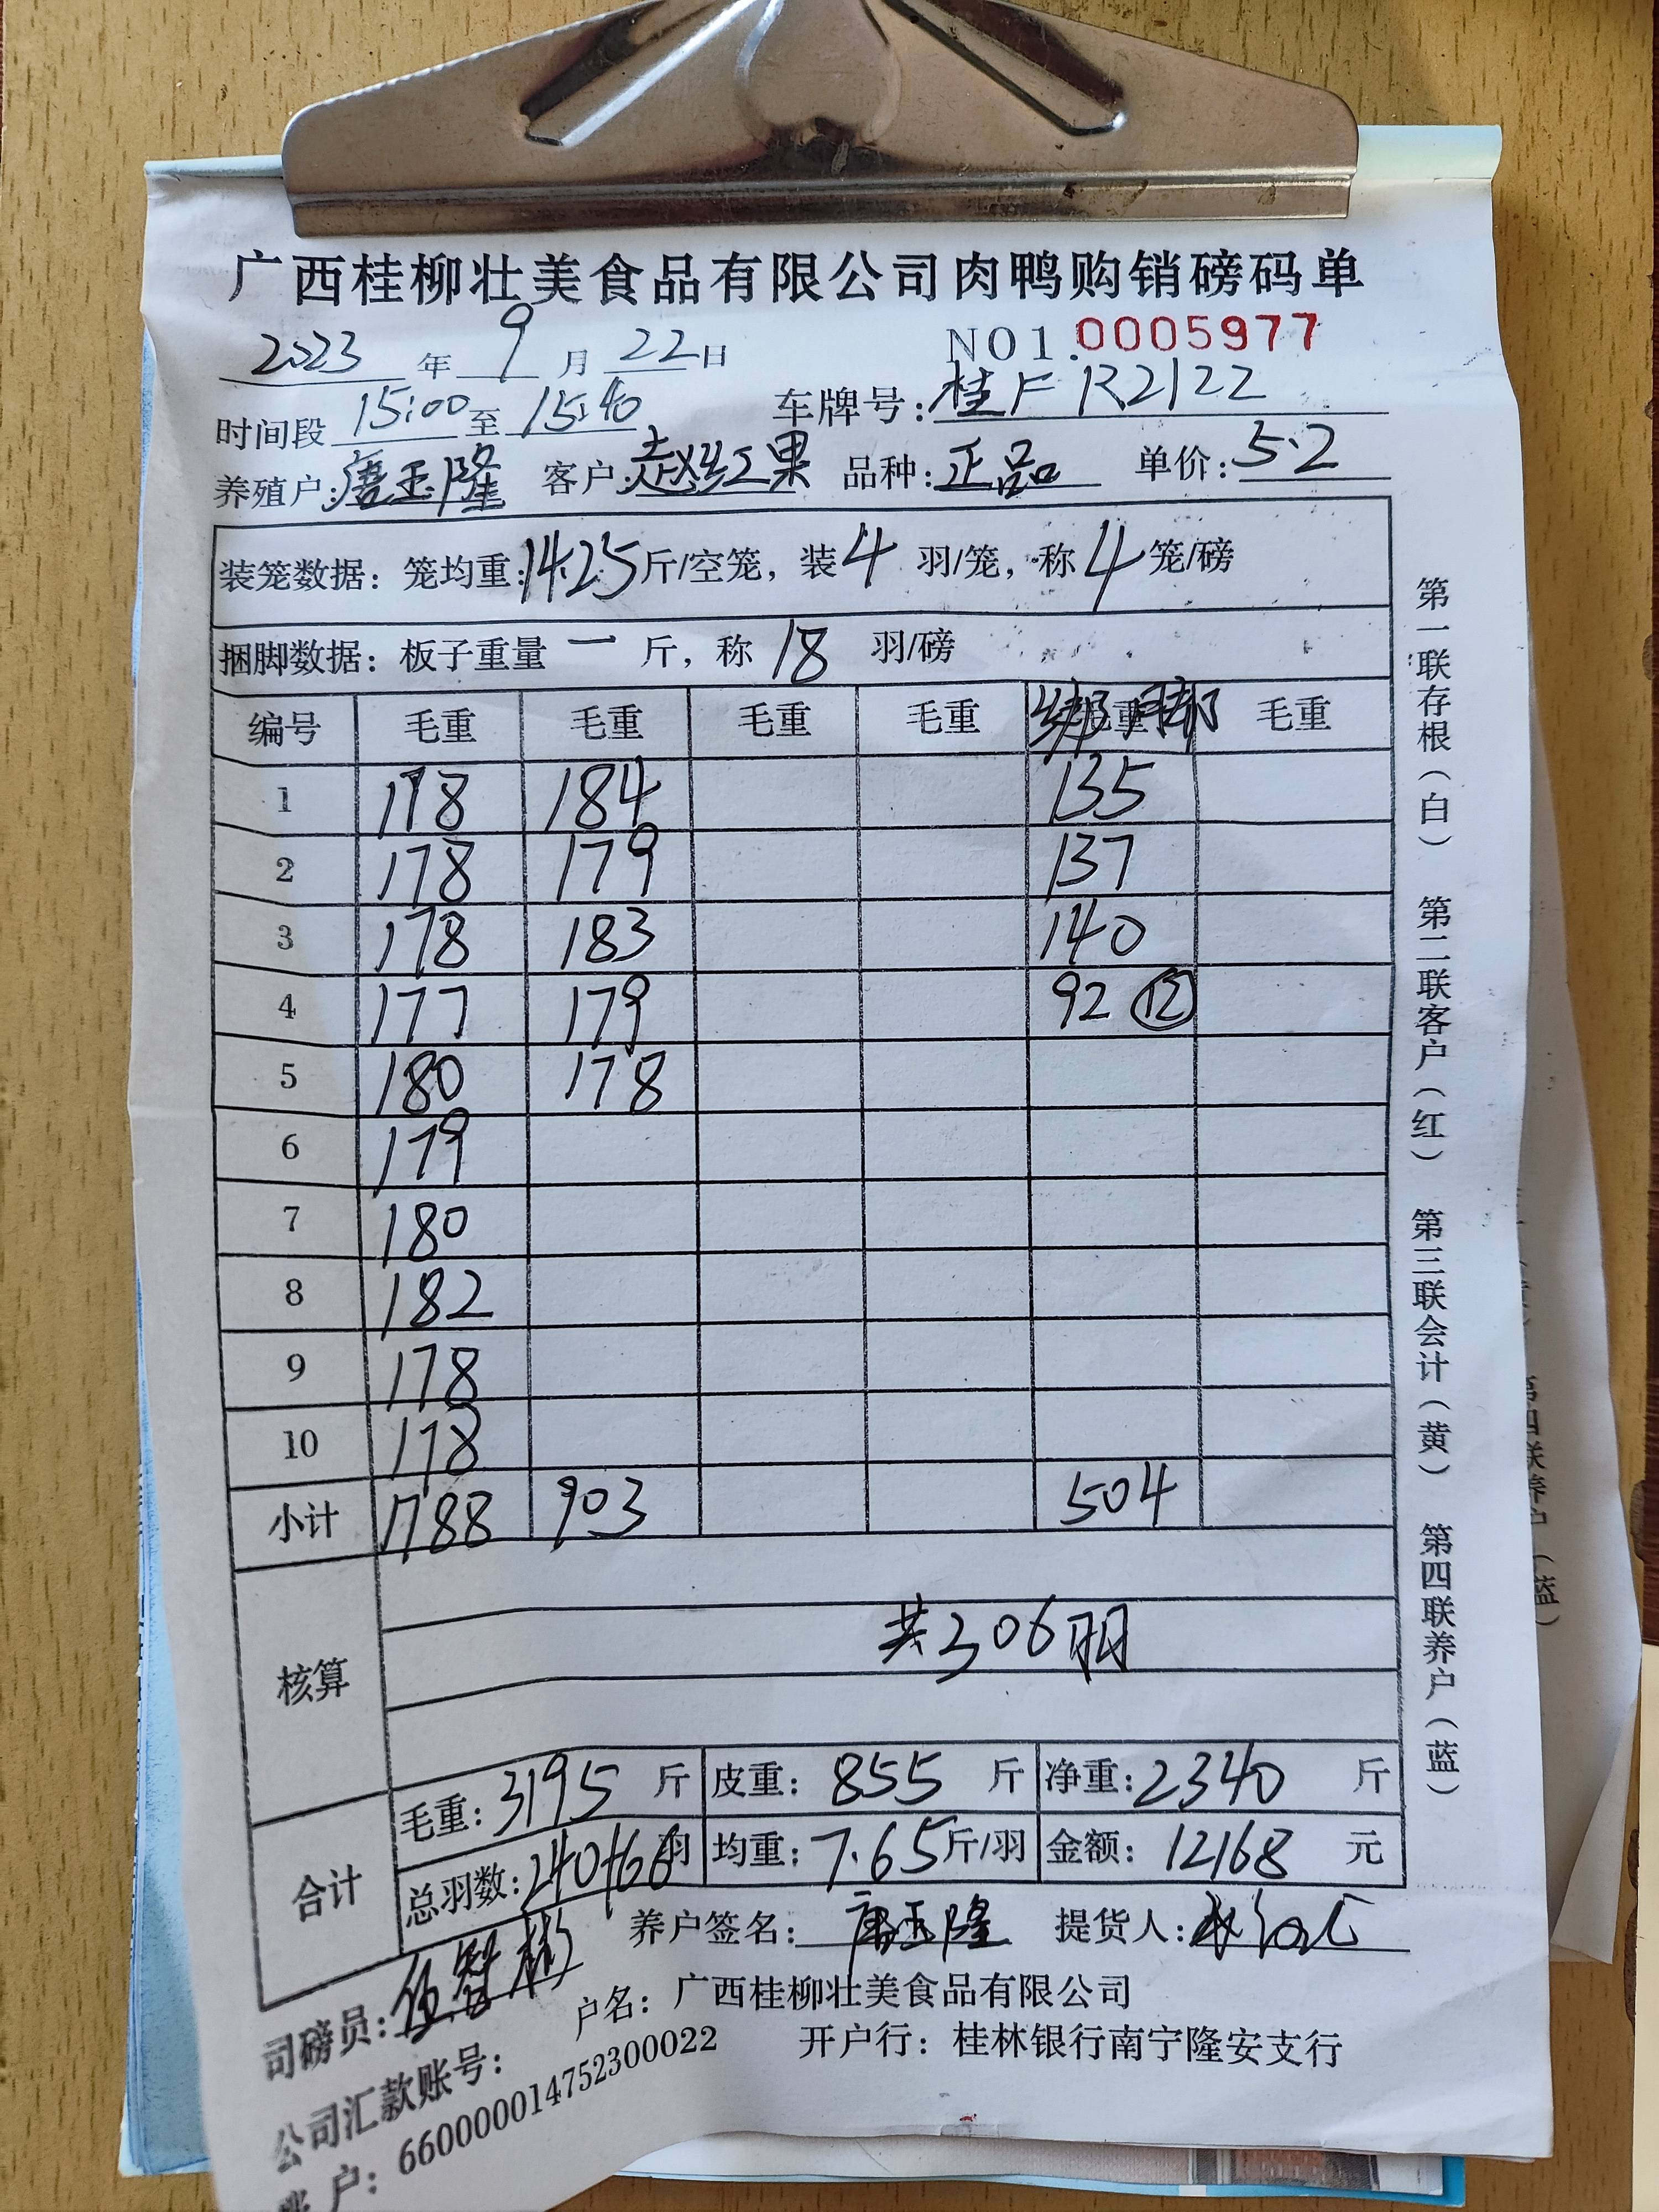 广西桂柳壮美食品有限公司肉鸭购销磅码单
2023 年 9 月 22 日 NO1.0005977
时间段 15:00 至 15:40 车牌号: 桂F R2122
养殖户: 唐玉隆 客户: 赵红果 品种: 正品 单价: 5.2
装笼数据: 笼均重: 14.25 斤/空笼, 装 4 羽/笼, 称 4 笼/磅
捆脚数据: 板子重量 一 斤, 称 18 羽/磅
编号 毛重 毛重 毛重 毛重 毛重 绑脚 毛重
1 178 184 135
2 178 179 137
3 178 183 140
4 177 179 92 ⑫
5 180 178
6 179
7 180
8 182
9 178
10 178
小计 1788 903 504
核算 共306羽
合计 毛重: 3195 斤 皮重: 855 斤 净重: 2340 斤
总羽数: 240+66 羽 均重: 7.65 斤/羽 金额: 12168 元
司磅员: 伍智彬 养户签名: 唐玉隆 提货人:
公司汇款账号: 户名: 广西桂柳壮美食品有限公司
户: 660000014752300022 开户行: 桂林银行南宁隆安支行
第一联存根(白) 第二联客户(红) 第三联会计(黄) 第四联养户(蓝)